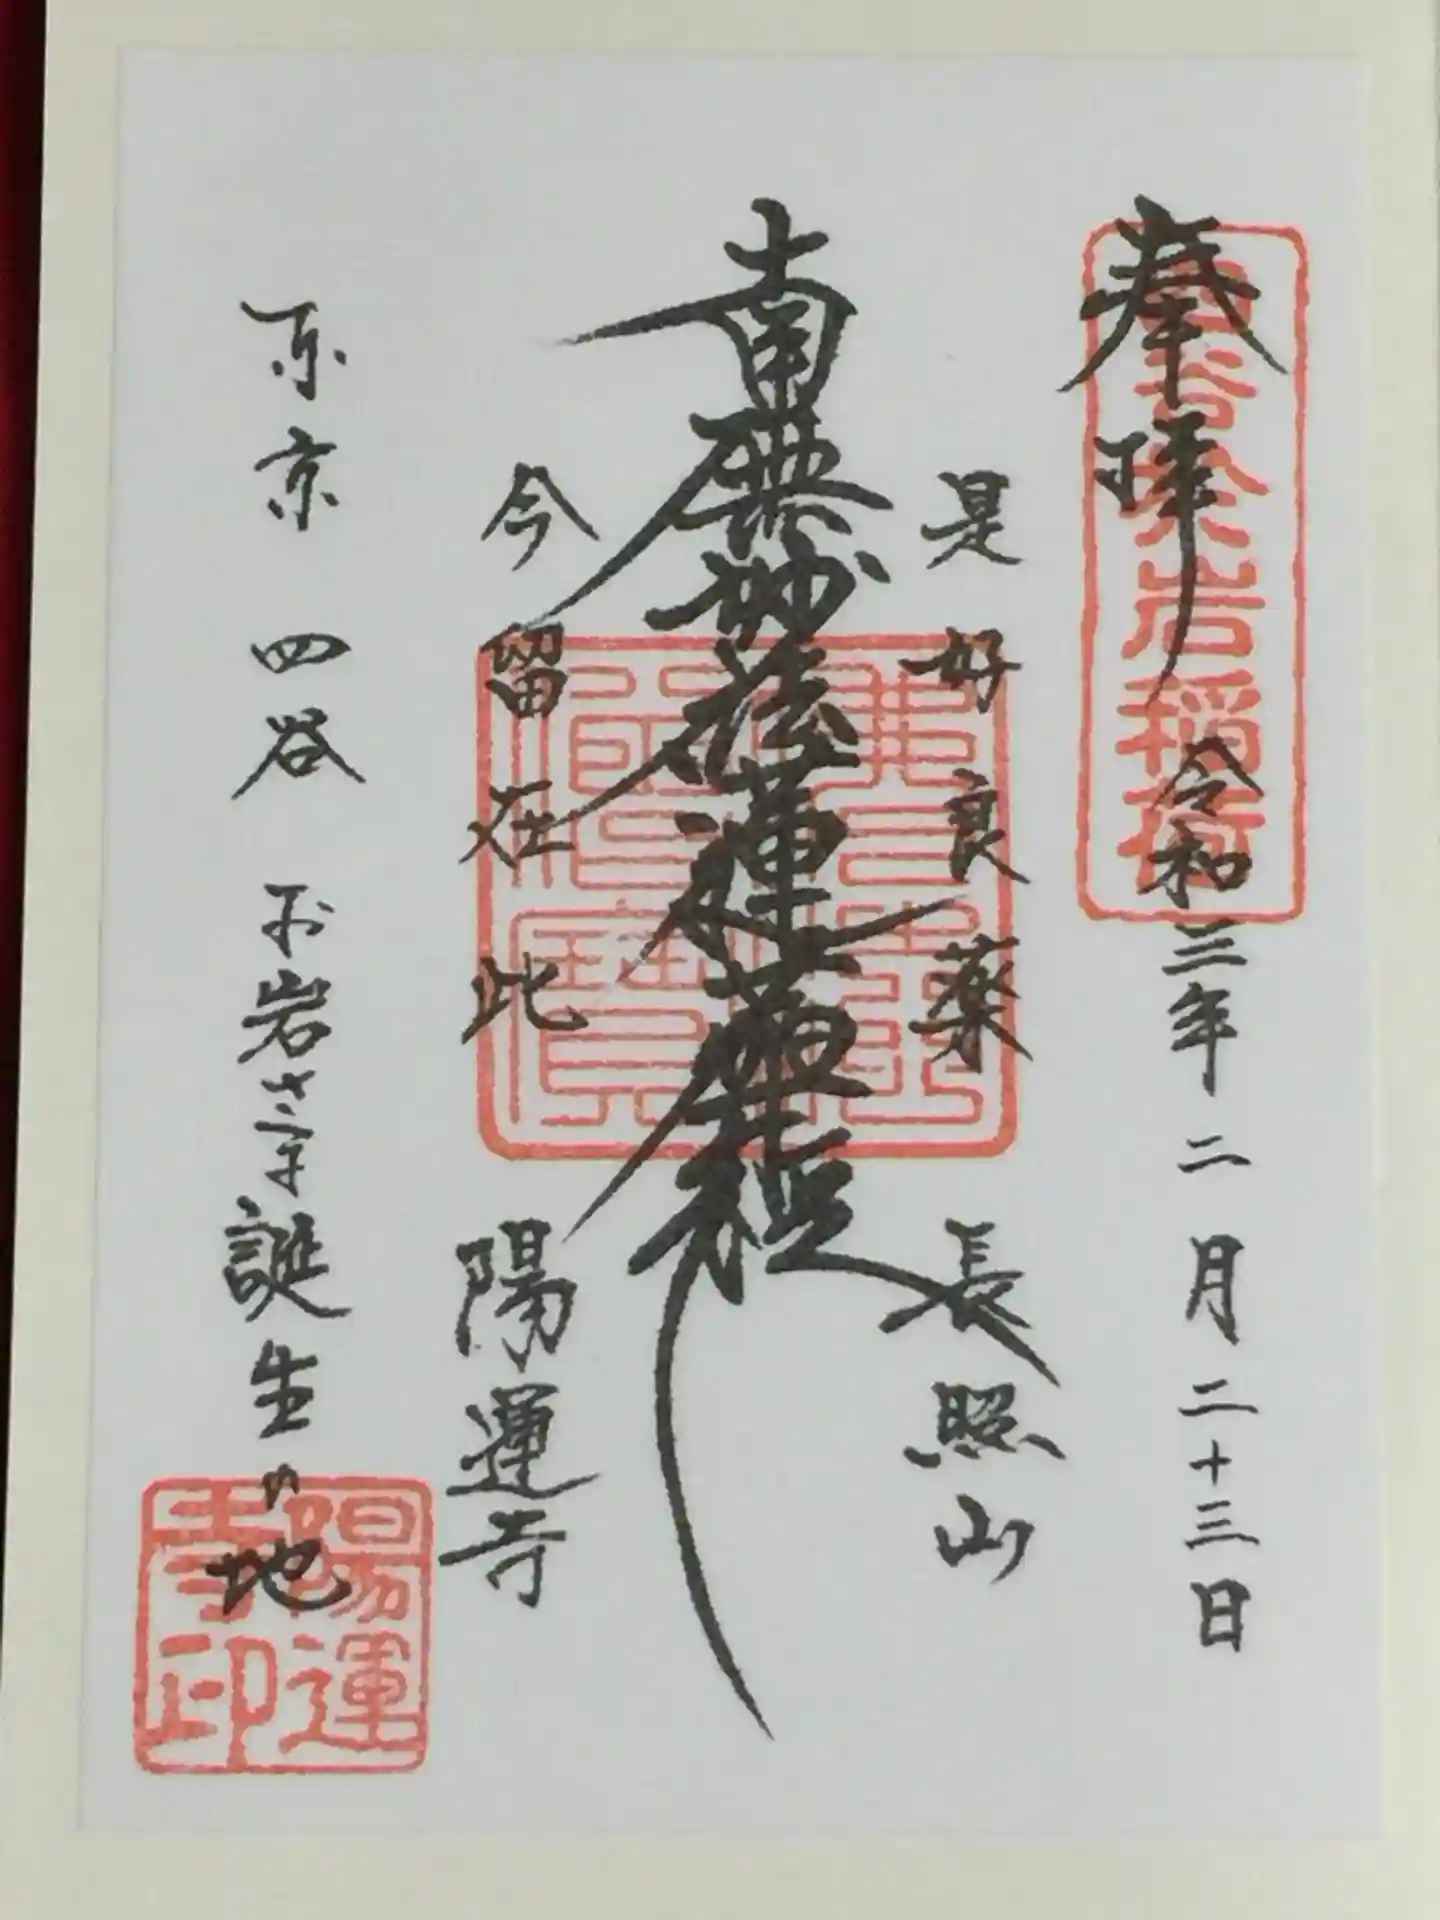 奉拝 令和三年二月二十三日
四谷於岩稲荷
是好良薬 長照山
南無妙法蓮華経
今留在此 陽運寺
東京 四谷 お岩さま誕生の地
陽運寺印